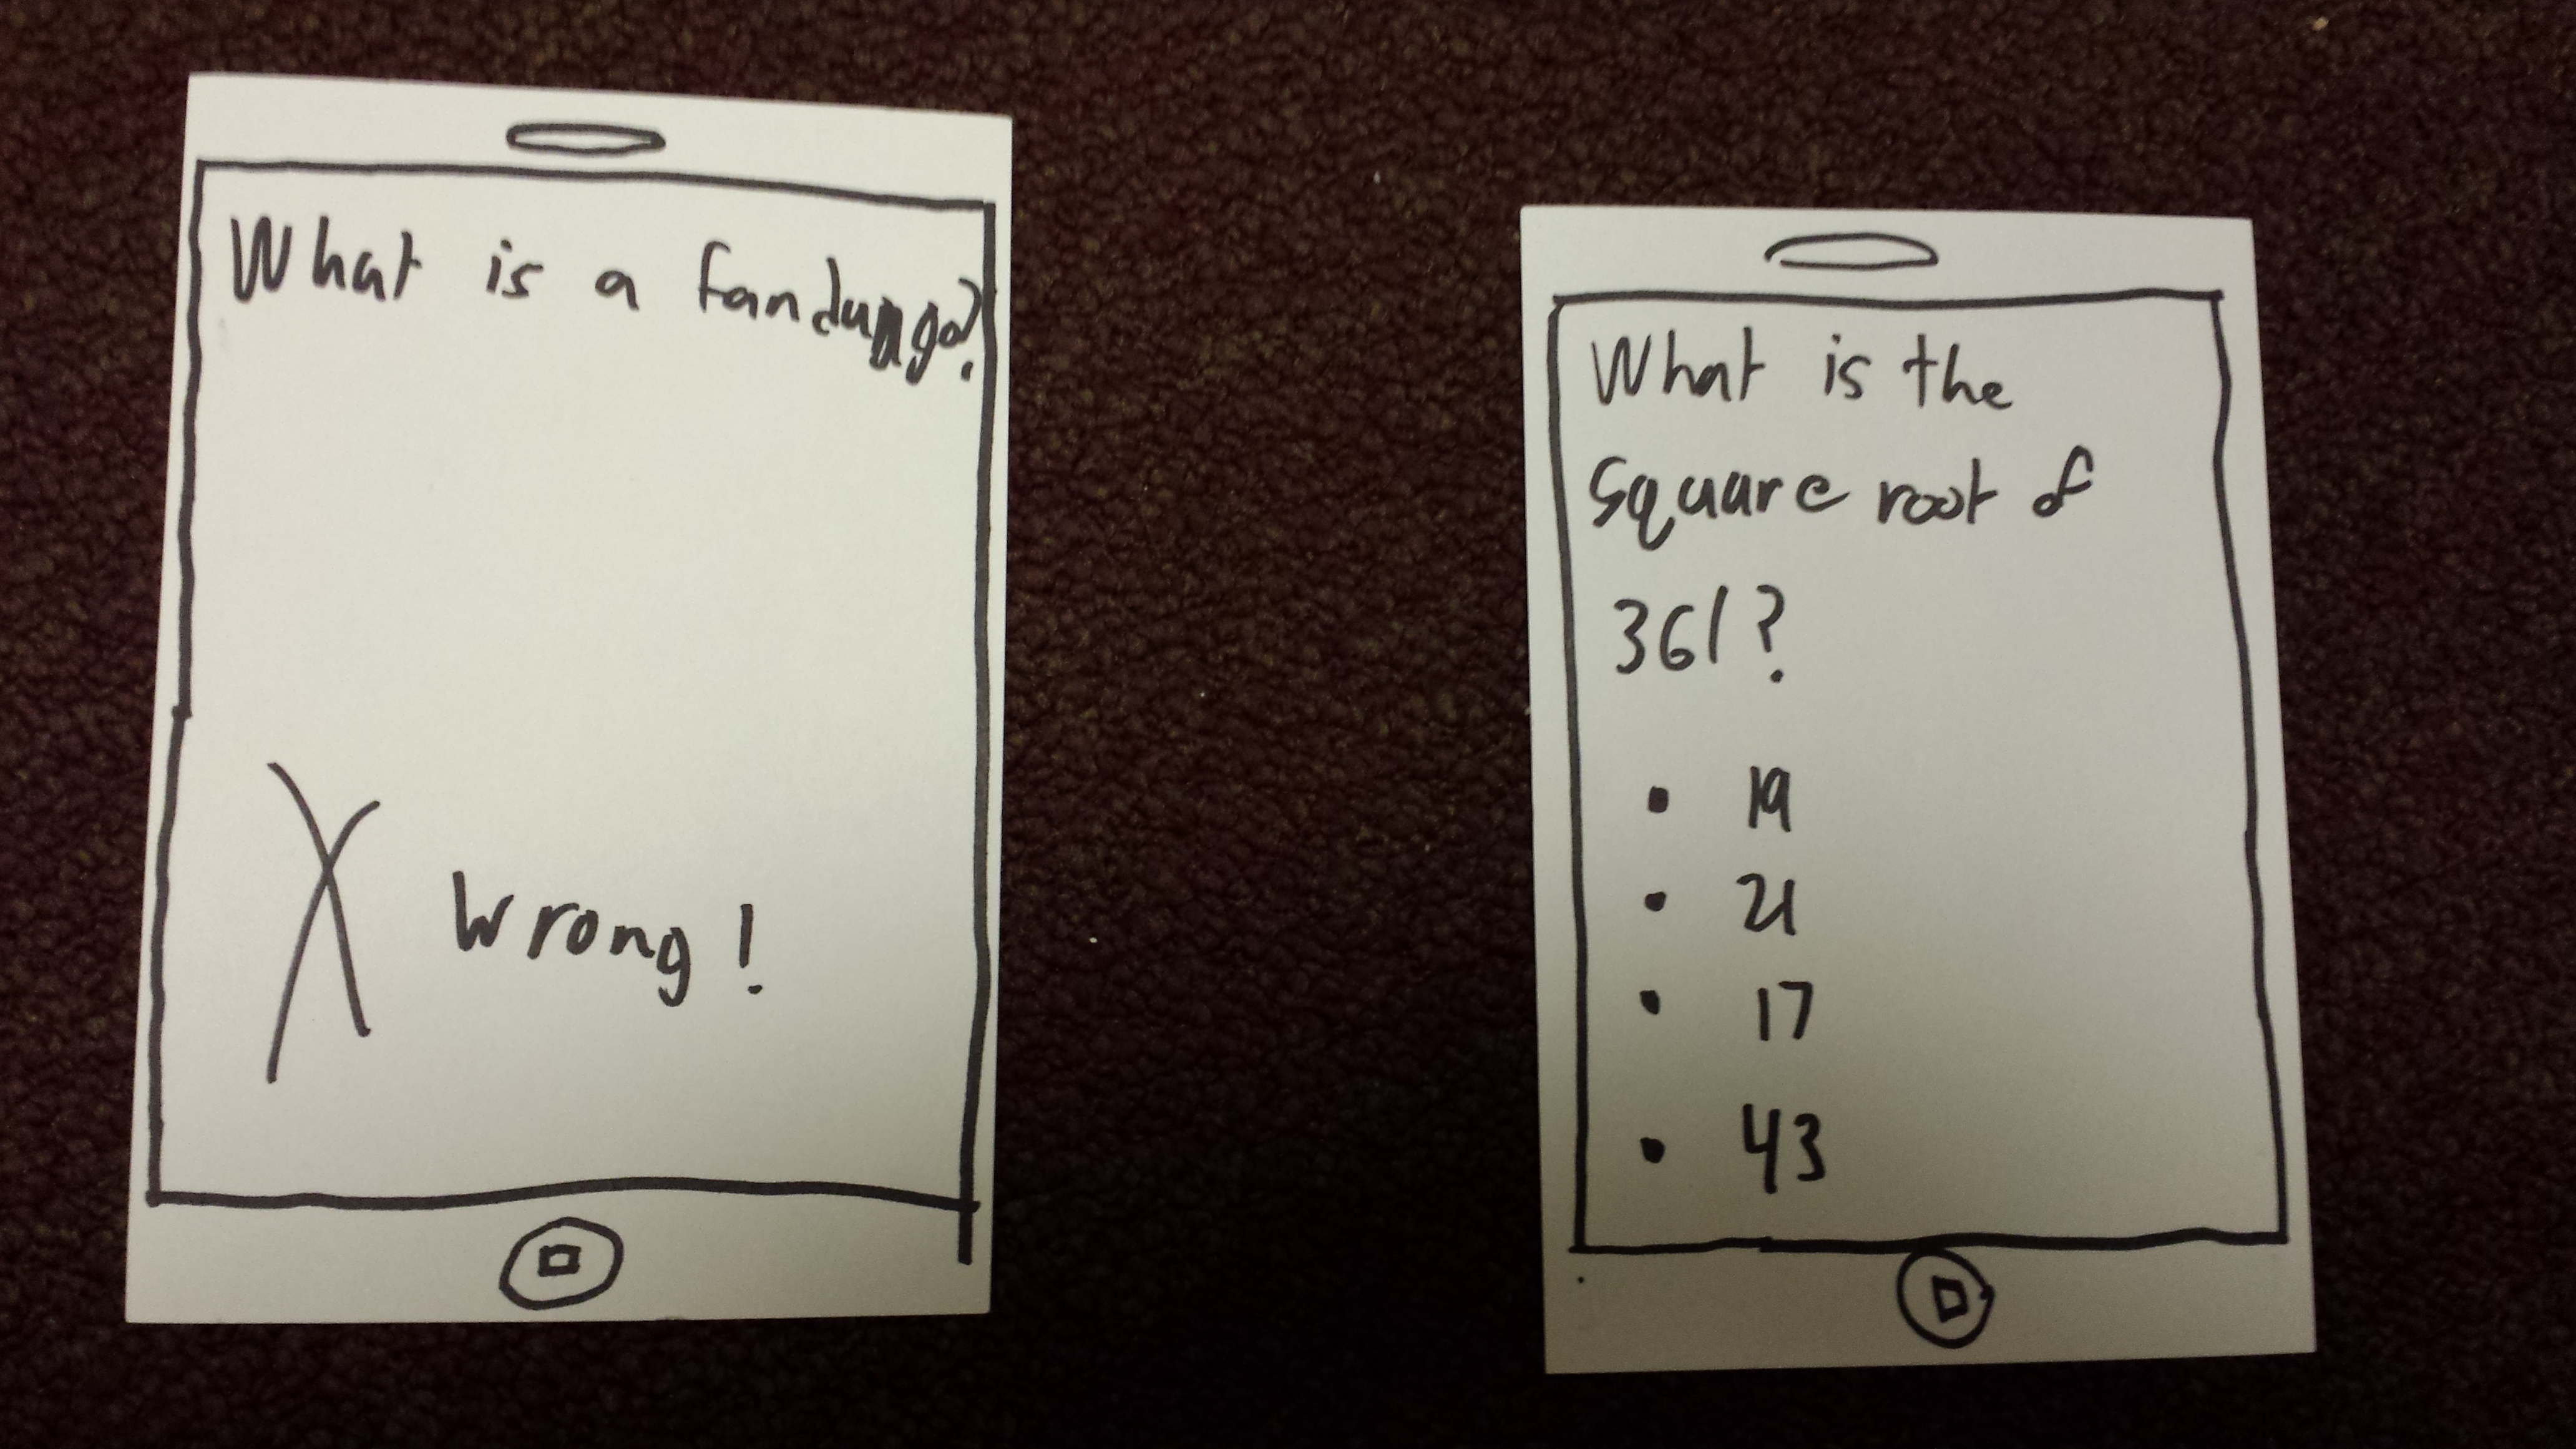 What is a
X Wrong!
What is the
square root of
361?
• 19
• 21
• 17
• 43